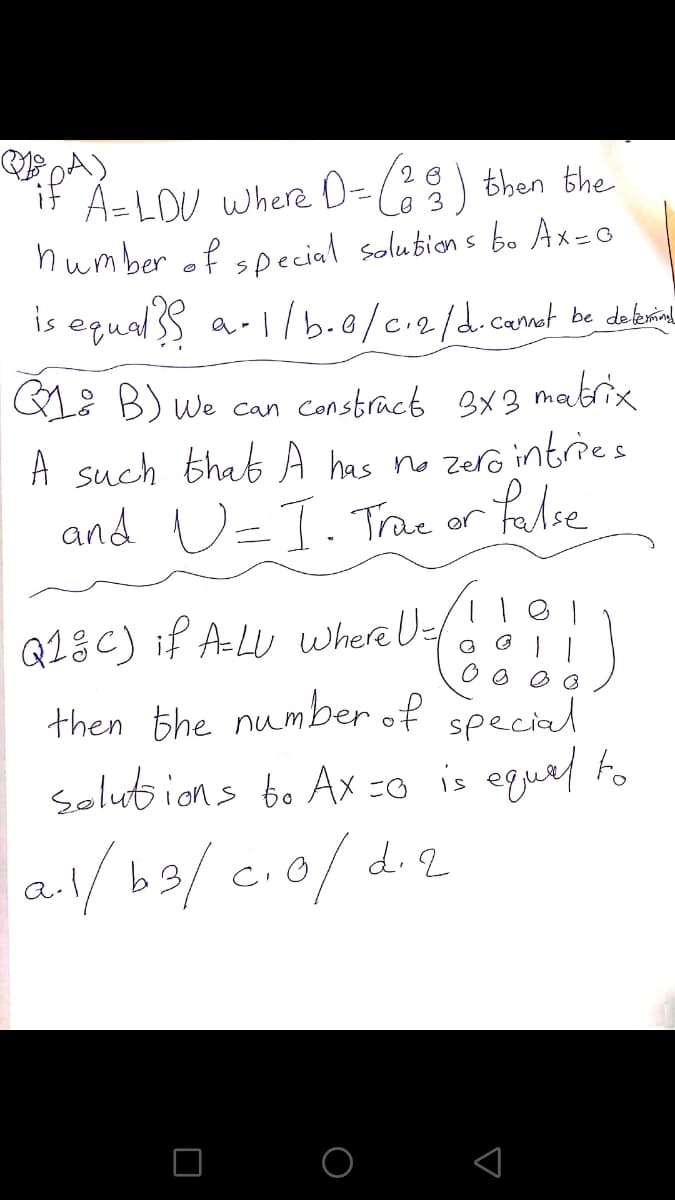 Q1: A)
if A=LDU where D=(2 0
0 3) then the
number of special solutions to Ax=0
is equal?? a-1/b-0/c.2/d.cannot be determined
Q1: B) We can construct 3x3 matrix
A such that A has no zero intries
and U=I. True or false
Q1: C) if A=LU where U=(1 1 0 1
0 0 1 1
0 0 0 0)
then the number of special
solutions to Ax=0 is equal to
a.1/ b3/ c.0/ d.2